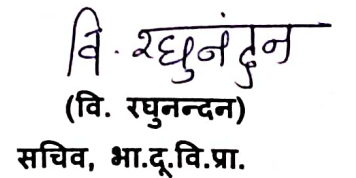 वि. रघुनंदन
(वि. रघुनन्दन)
सचिव, भा.दू.वि.प्रा.